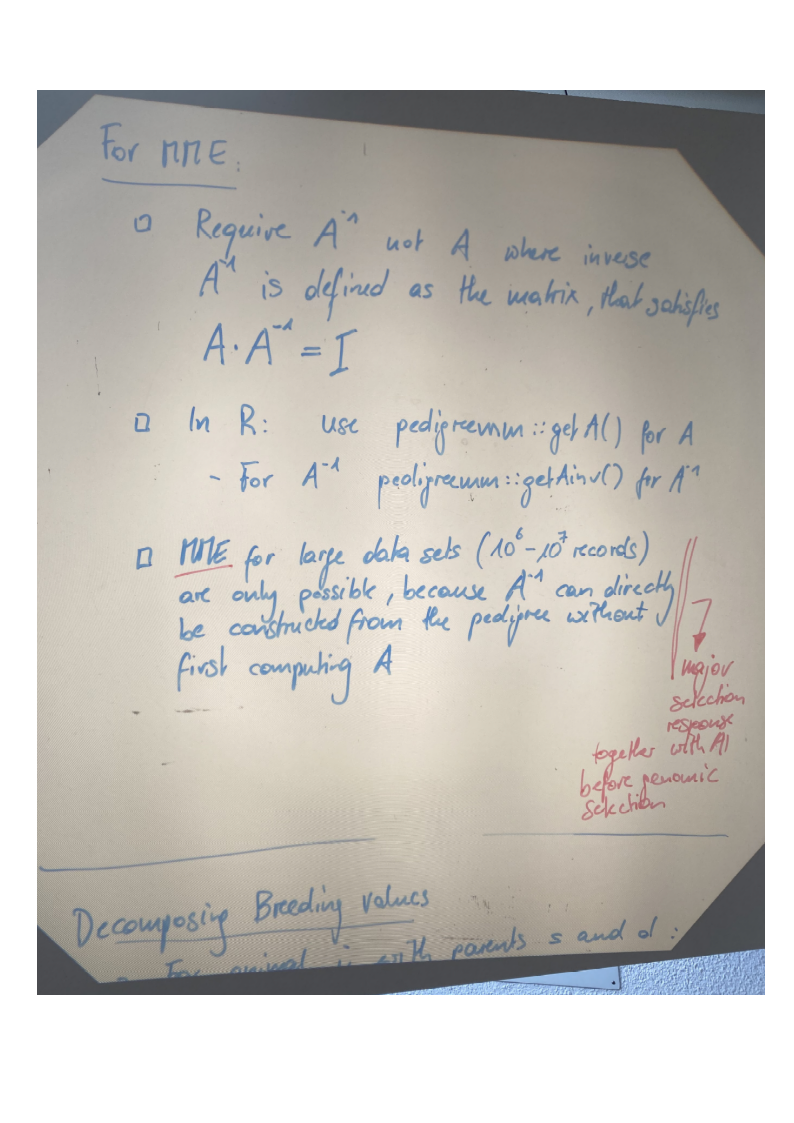 For MME:
□ Require A⁻¹ not A where inverse
A⁻¹ is defined as the matrix, that satisfies
A · A⁻¹ = I
□ In R: use pedigreemm::getA() for A
- For A⁻¹ pedigreemm::getAinv() for A⁻¹
□ MME for large data sets (10⁶-10⁷ records)
are only possible, because A⁻¹ can directly
be constructed from the pedigree without
first computing A
major
selection
response
together with AI
before genomic
selection
Decomposing Breeding values
- For animal i with parents s and d: